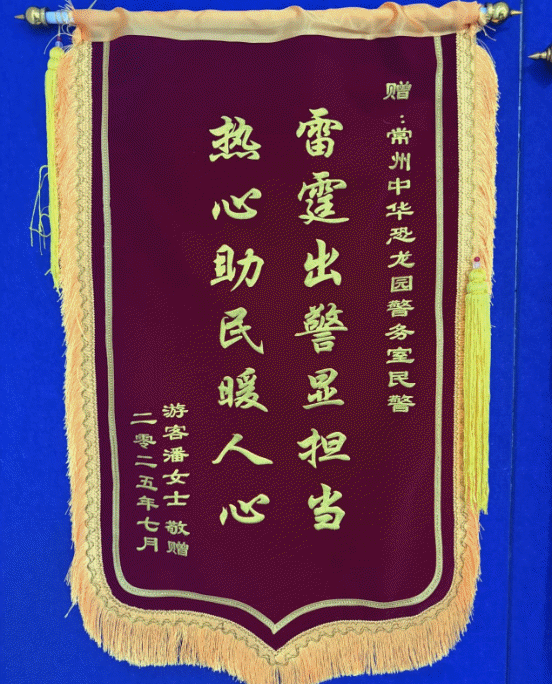 赠：常州中华恐龙园警务室民警
雷霆出警显担当
热心助民暖人心
游客潘女士 敬赠
二零二五年七月